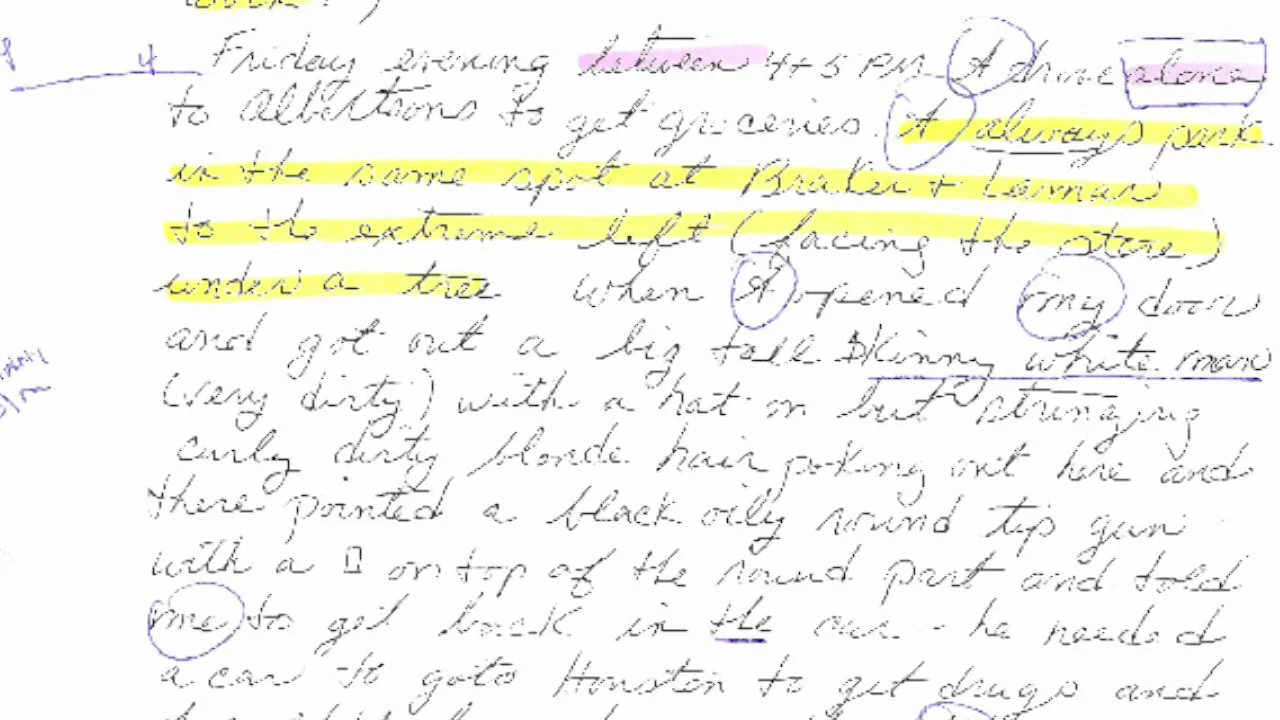 4 Friday evening between 4+5 PM I drive alone
to Albertsons to get groceries. I always park
in the same spot at Braker + Lamar
to the extreme left (facing the store)
under a tree when I opened my door
and got out a big tall skinny white man
(very dirty) with a hat on but stringy
curly dirty blonde hair poking out here and
there pointed a black oily round tip gun
with a on top of the round part and told
me to get back in the car - he needed
a car to go to Houston to get drugs and